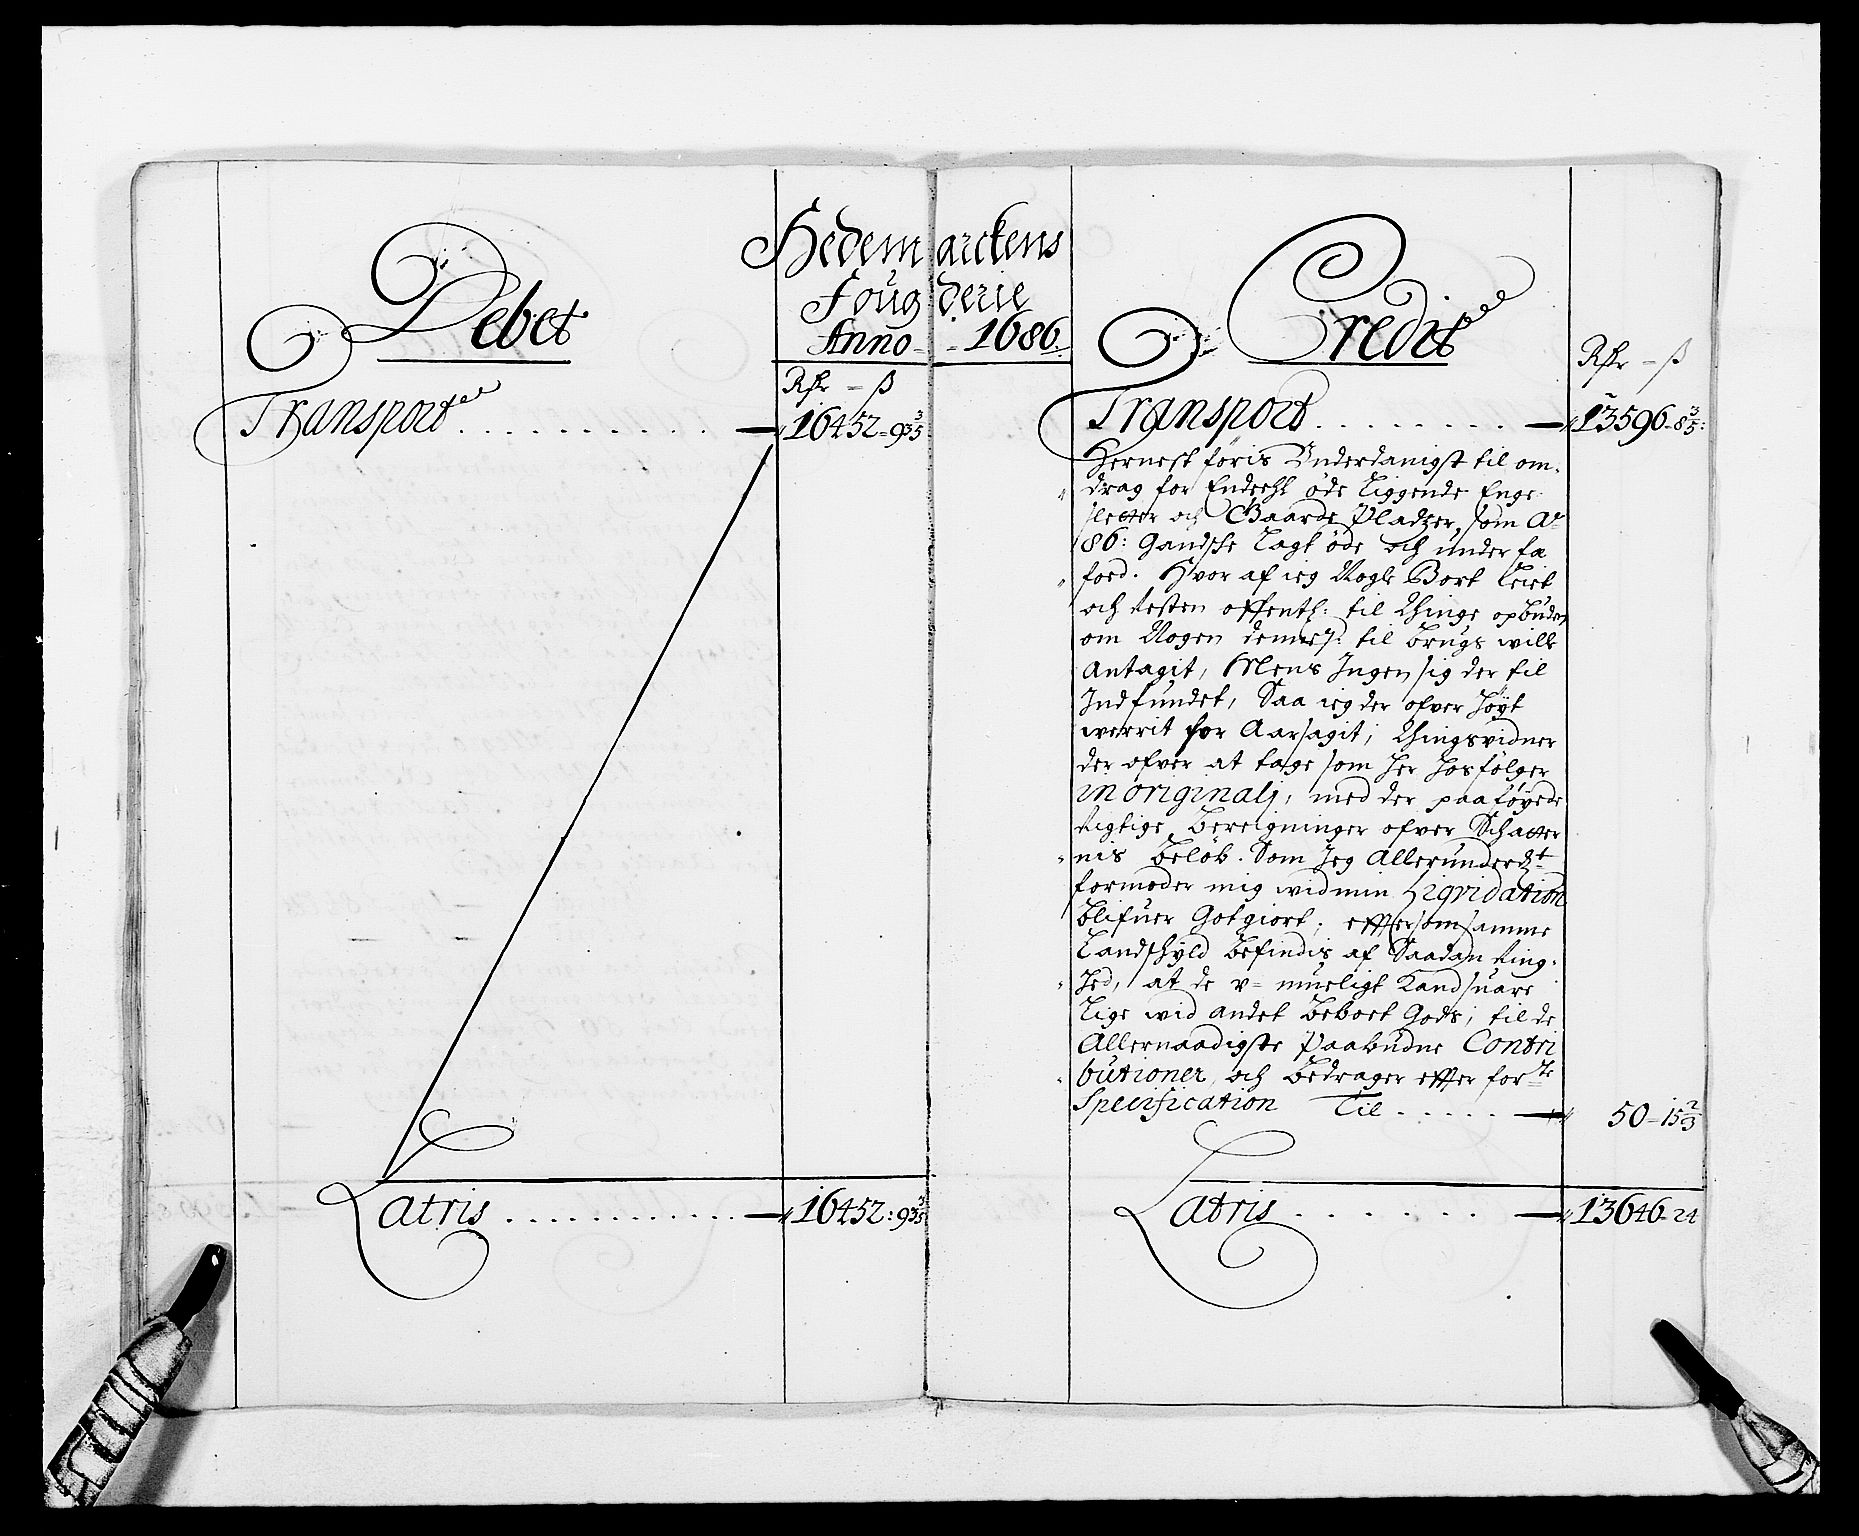 Hedemarckens
Fougderie
Anno 1686.
Debet
Rdr - ß
Transport . . . . . . . . . . — 16452=9 3/5
Latris . . . . . . . . . . . . — 16452:9 3/5
Credit
Rdr - ß
Transport . . . . . . . . — 13596-8 3/5:
Hernest føris Underdanigst til om-
drag for Endeehl øde liggende Enge
sletter och Gaarde Pladzer, som Ao
86: gandsche lagt øde och under fæ
foed. Hvor af ieg Nogle Bort leiet
och resten offentl: til Thinge opbuden
om Nogen dennes: til brugs wille
Antagit, Mens Ingen sig der til
Indfundet, Saa ieg der ofver høyt
werrit for Aarsagit; Thingsvidner
der ofver at tage som her hosfølger
in originalj, med der paaføyede
rigtige Bereigninger ofver Schatter
nis beløb. Som Jeg Allerunderdt
formoder mig wid min Liqvidation
blifuer Gotgiort; effter som samme
Landschyld befindis af Saadan ring-
hed, at de u-mueligt Kand suare
lige wid andet beboet Gods, til de
Allernaadigste Paabudne Contri
butioner, och bedrager effter forte
Specification Til . . . . . — 50-15 2/3
Latris . . . . . . — 13646-24